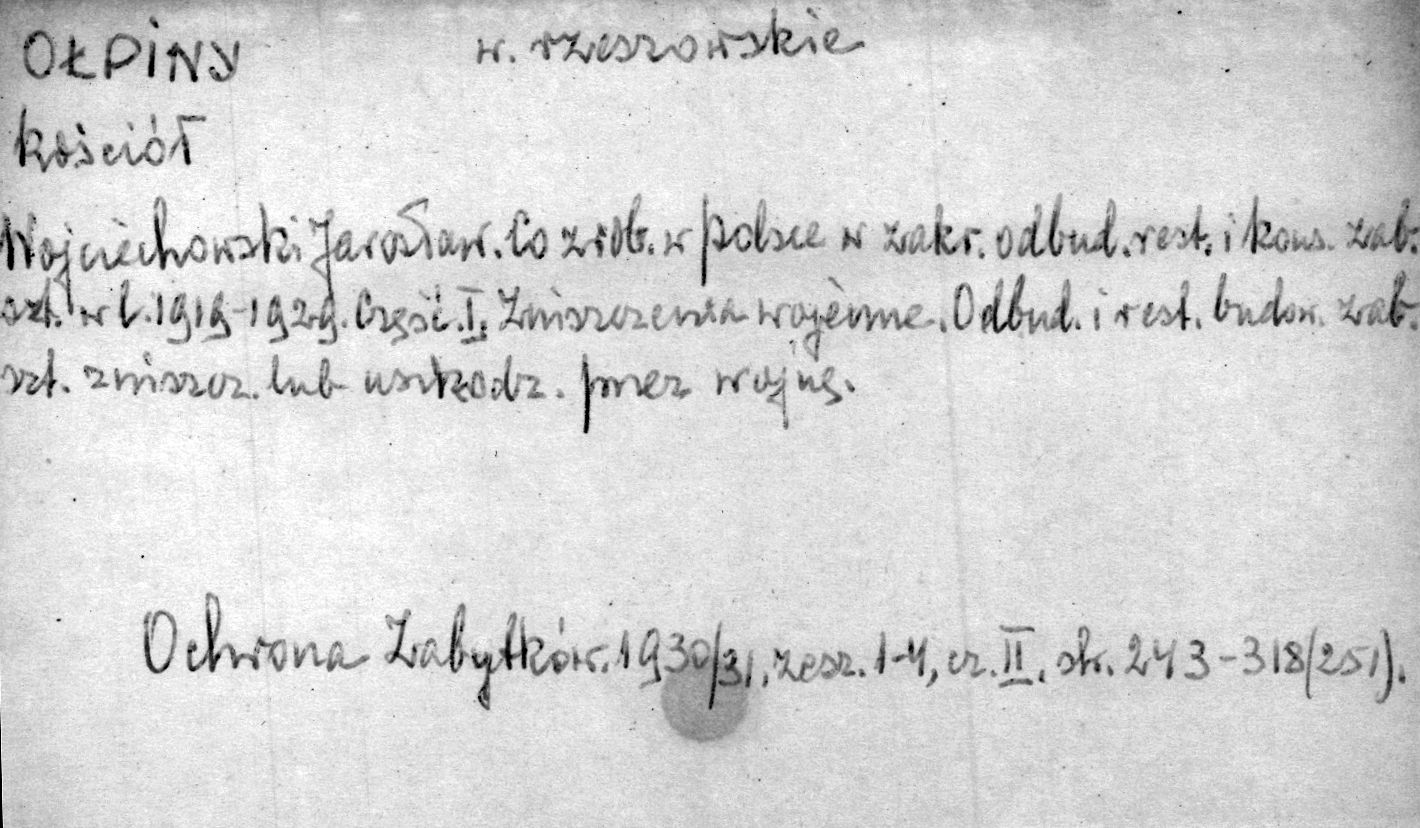 OŁPINY w. rzeszowskie
kościół
Wojciechowski Jarosław. Co zrob. w Polsce w zakr. odbud. rest. i kons. zab.
szt. w l. 1919-1929. Część. I. Zniszczenia wojenne. Odbud. i rest. budow. zab.
szt. zniszcz. lub uszkodz. przez wojnę.
Ochrona Zabytków. 1930/31, zesz. 1-4, cz. II. str. 243-318(251).